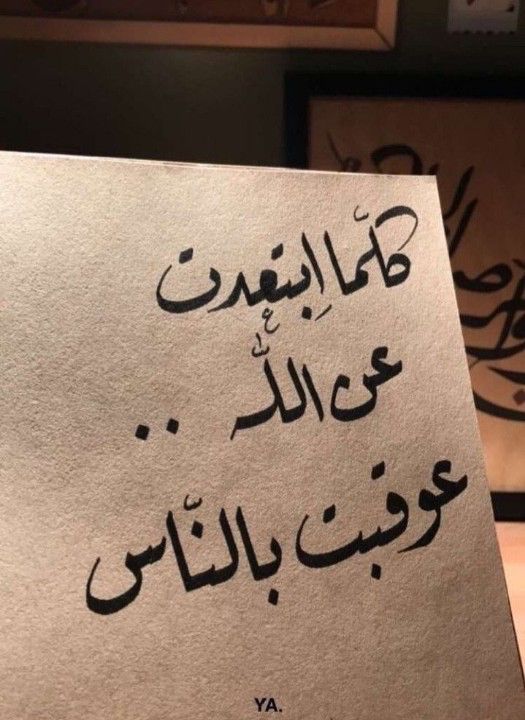 كلَّما اِبتعدت
عن اللّٰه ..
عوقبت بالنّاس
YA.